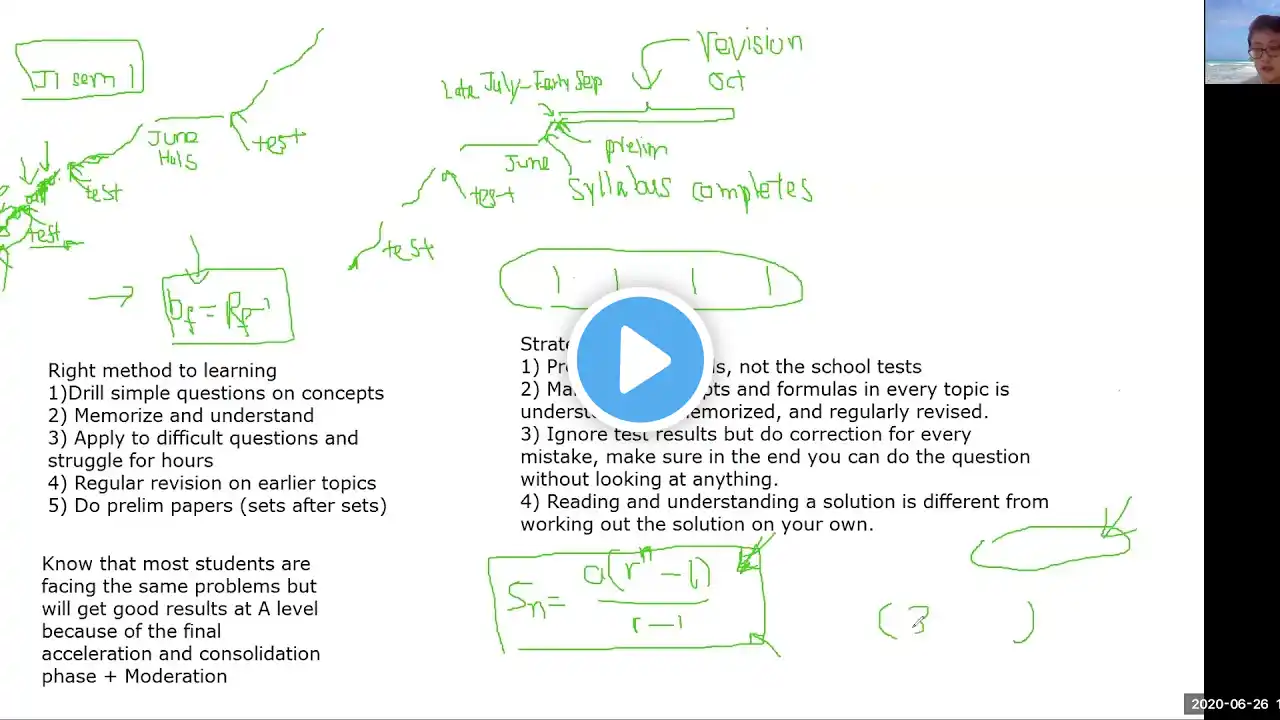 J1 sem 1
June
Hols
test
test
test
Late July-Early Sep
revision
Oct
prelim
June
test
Syllabus completes
test
D_f = R_f^-1
Right method to learning
1)Drill simple questions on concepts
2) Memorize and understand
3) Apply to difficult questions and
struggle for hours
4) Regular revision on earlier topics
5) Do prelim papers (sets after sets)
Know that most students are
facing the same problems but
will get good results at A level
because of the final
acceleration and consolidation
phase + Moderation
1) , not the school tests
2) and formulas in every topic is
memorized, and regularly revised.
3) Ignore test results but do correction for every
mistake, make sure in the end you can do the question
without looking at anything.
4) Reading and understanding a solution is different from
working out the solution on your own.
S_n = a(r^n - 1) / r - 1
(3 )
2020-06-26